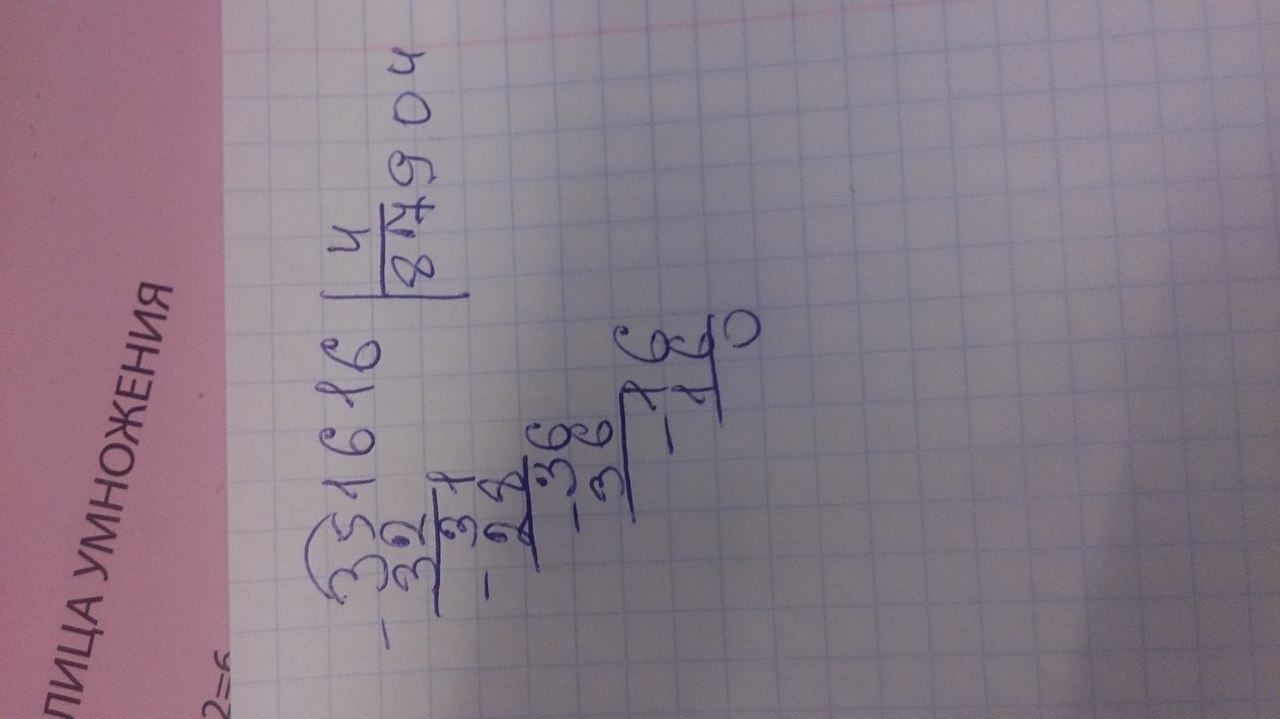 ЛИЦА УМНОЖЕНИЯ
2=6
- 351616 | 4
32 | 87904
31
- 28
- 36
36
16
- 16
0